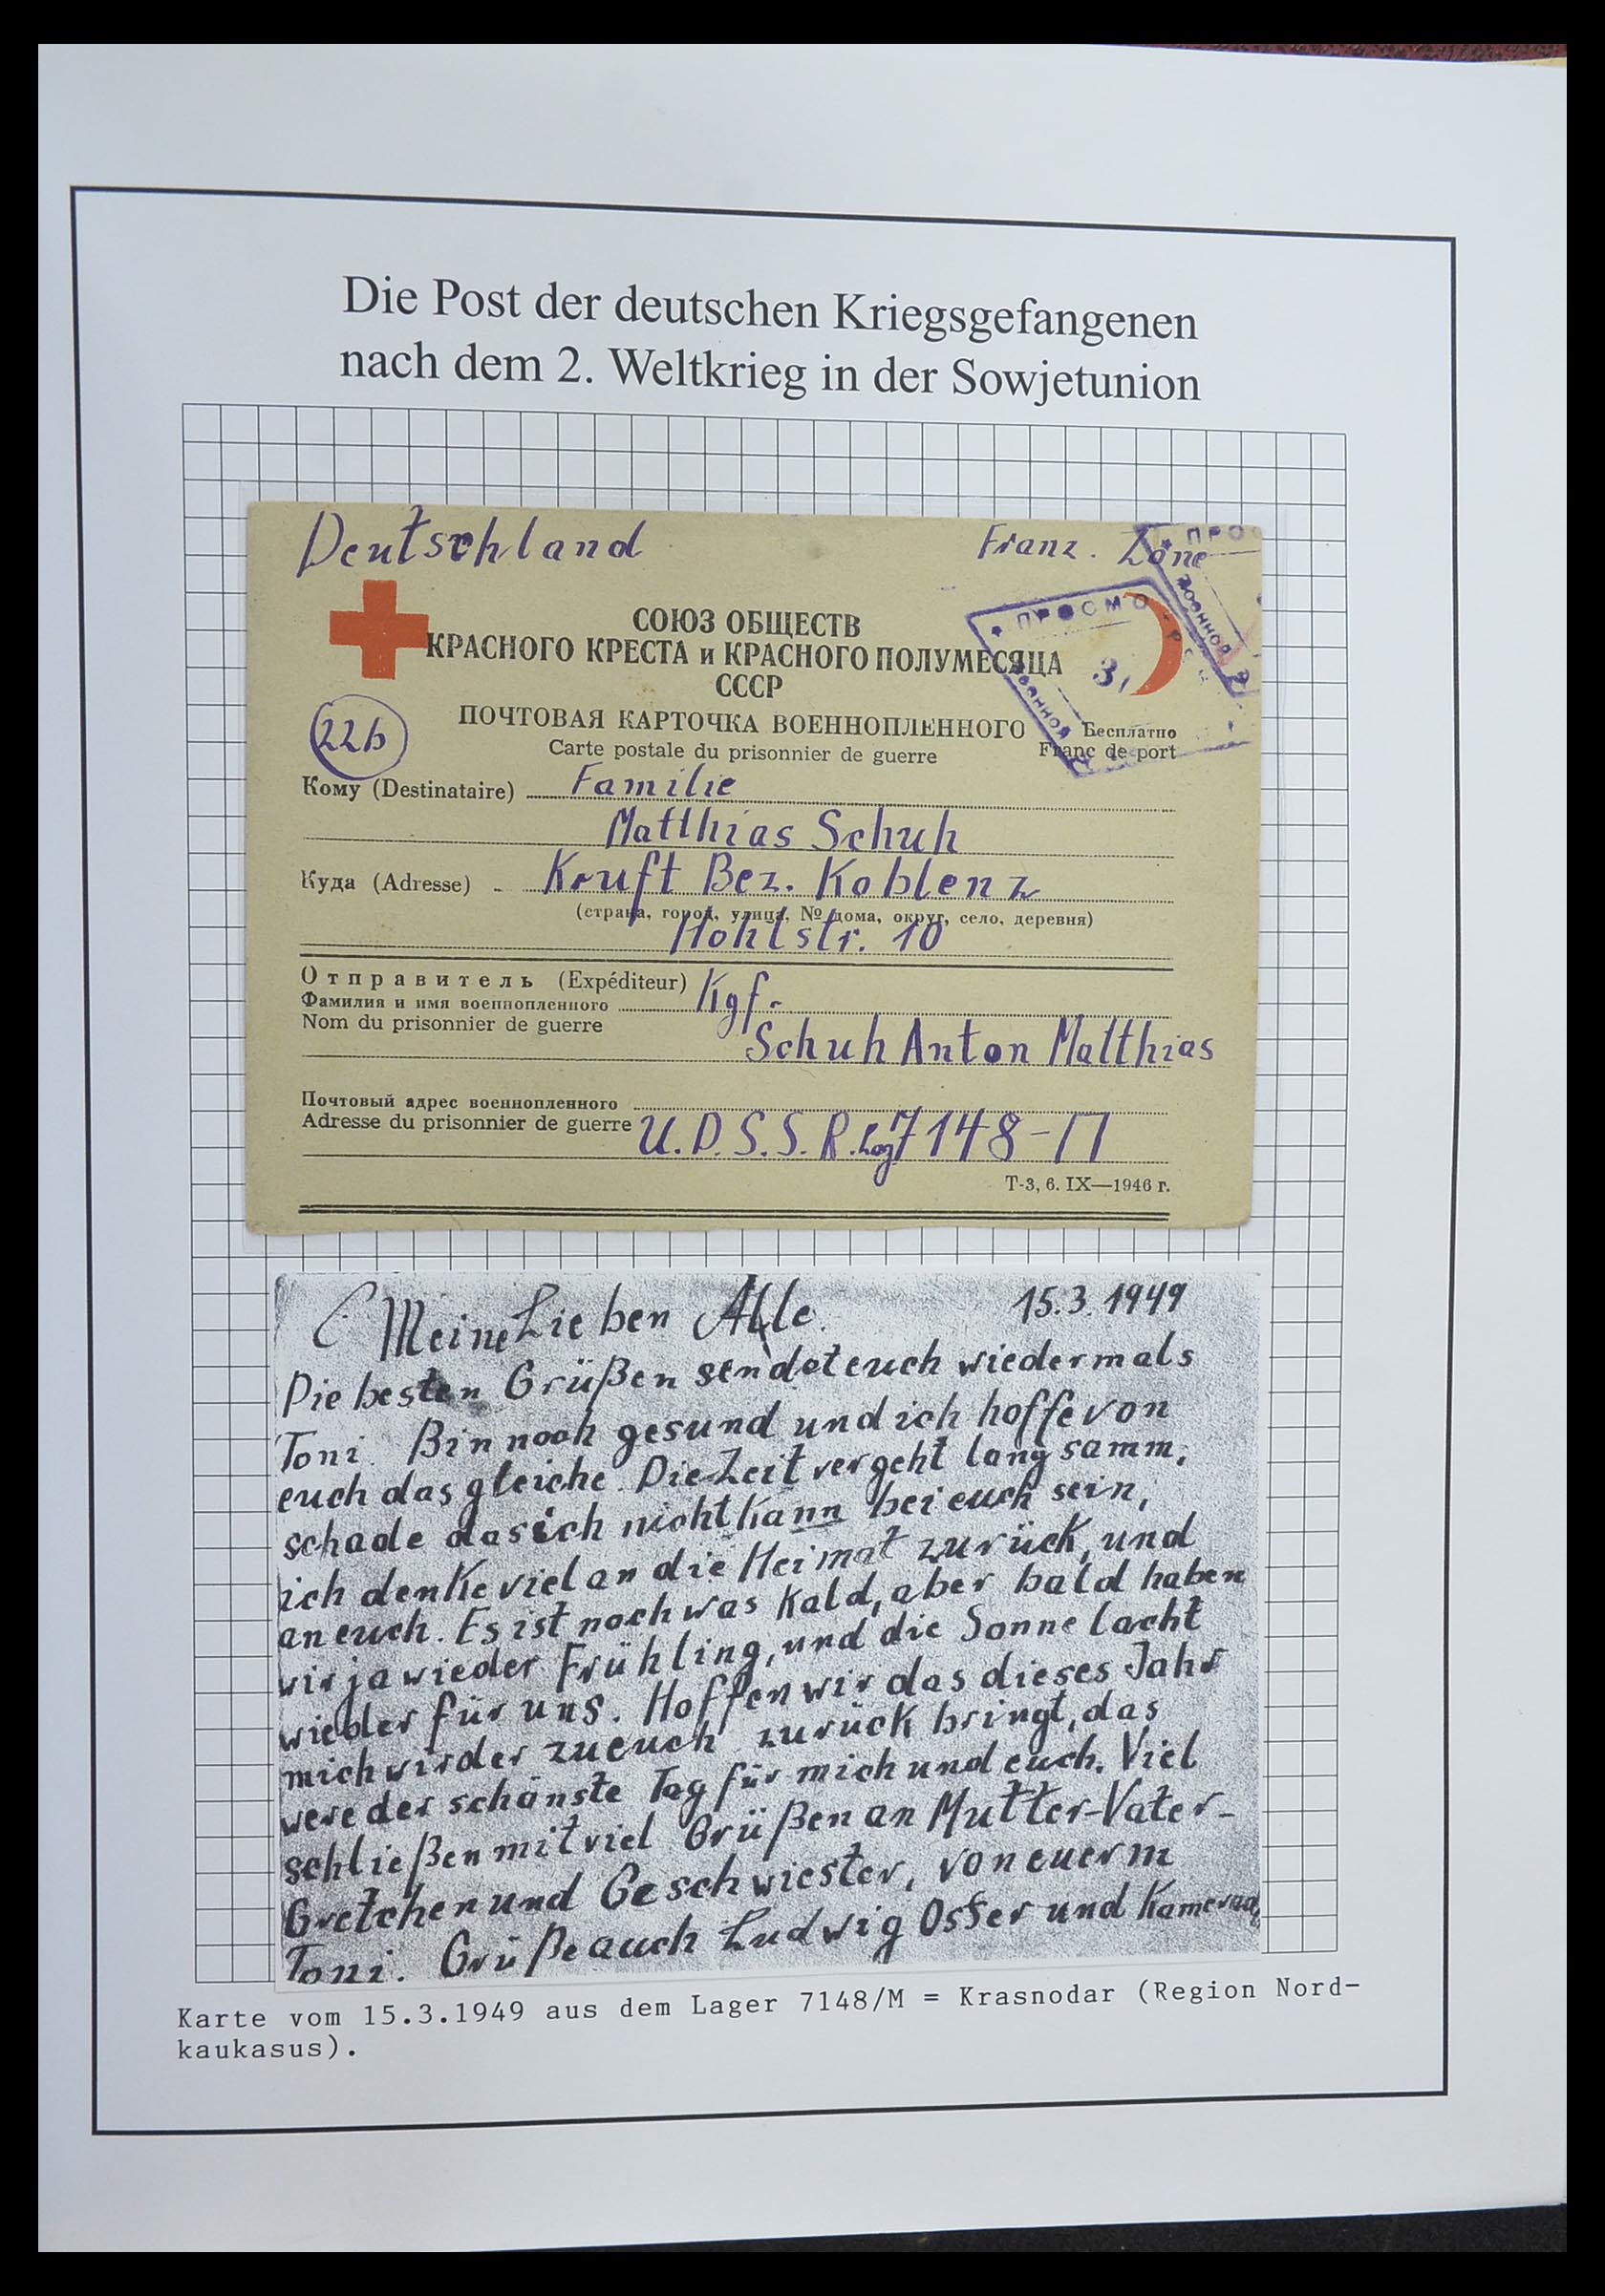 Die Post der deutschen Kriegsgefangenen
nach dem 2. Weltkrieg in der Sowjetunion
Deutschland
Franz. Zone
СОЮЗ ОБЩЕСТВ
КРАСНОГО КРЕСТА и КРАСНОГО ПОЛУМЕСЯЦА
СССР
22b
ПОЧТОВАЯ КАРТОЧКА ВОЕННОПЛЕННОГО
Бесплатно
Carte postale du prisonnier de guerre
Franc de port
Кому (Destinataire) Familie
Matthias Schuh
Куда (Adresse) Kruft Bez. Koblenz
(страна, город, улица, № дома, округ, село, деревня)
Hohlstr. 10
Отправитель (Expéditeur) Kgf.
Фамилия и имя военнопленного
Nom du prisonnier de guerre
Schuh Anton Matthias
Почтовый адрес военнопленного
Adresse du prisonnier de guerre U.D.S.S.R. Lag 7148-П
Т-3, 6. IX—1946 г.
Meine Lieben Alle. 15.3.1949
Die besten Grüßen sendet euch wiedermals
Toni. Bin noch gesund und ich hoffe von
euch das gleiche. Die Zeit vergeht langsamm,
schade das ich nicht kann bei euch sein,
ich denke viel an die Heimat zurück, und
an euch. Es ist noch was kald, aber bald haben
wir ja wieder Frühling, und die Sonne lacht
wieder für uns. Hoffen wir das dieses Jahr
mich wirder zu euch zurück bringt, das
were der schönste Tag für mich und euch. Viel
schließen mit viel Grüßen an Mutter-Vater-
Gretchen und Geschwiester, von euerm
Toni. Grüße auch Ludwig Oster und Kamerad
Karte vom 15.3.1949 aus dem Lager 7148/M = Krasnodar (Region Nord-
kaukasus).